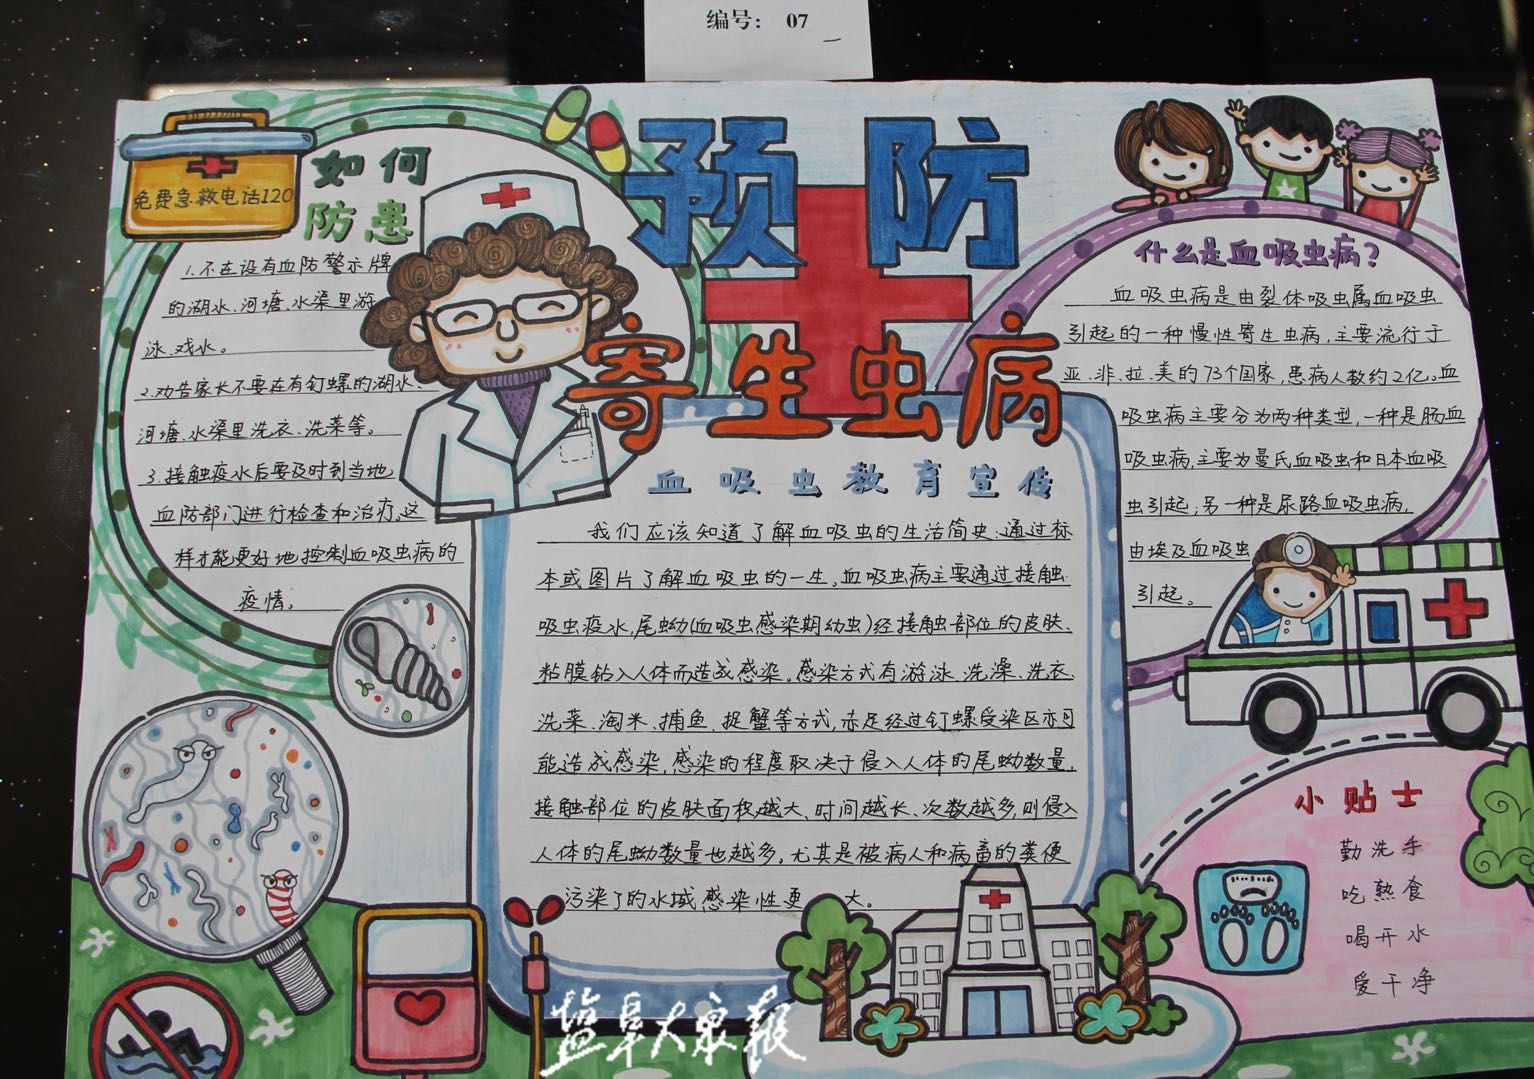 编号： 07
预防
寄生虫病
免费急救电话120
如何
防患
1.不在设有血防警示牌
的湖水、河塘、水渠里游
泳、戏水。
2.劝告家长不要在有钉螺的湖水、
河塘、水渠里洗衣、洗菜等。
3.接触疫水后要及时到当地
血防部门进行检查和治疗,这
样才能更好地控制血吸虫病的
疫情。
血吸虫教育宣传
我们应该知道了解血吸虫的生活简史,通过标
本或图片了解血吸虫的一生,血吸虫病主要通过接触
吸虫疫水,尾蚴(血吸虫感染期幼虫)经接触部位的皮肤、
粘膜钻入人体而造成感染。感染方式有游泳、洗澡、洗衣、
洗菜、淘米、捕鱼、捉蟹等方式,赤足经过钉螺受染区亦可
能造成感染,感染的程度取决于侵入人体的尾蚴数量,
接触部位的皮肤面积越大、时间越长、次数越多,则侵入
人体的尾蚴数量也越多。尤其是被病人和病畜的粪便
污染了的水域感染性更大。
什么是血吸虫病?
血吸虫病是由裂体吸虫属血吸虫
引起的一种慢性寄生虫病,主要流行于
亚、非、拉、美的73个国家,患病人数约2亿。血
吸虫病主要分为两种类型,一种是肠血
吸虫病,主要为曼氏血吸虫和日本血吸
虫引起;另一种是尿路血吸虫病,
由埃及血吸虫
引起。
小贴士
勤洗手
吃熟食
喝开水
爱干净
盐阜大众报